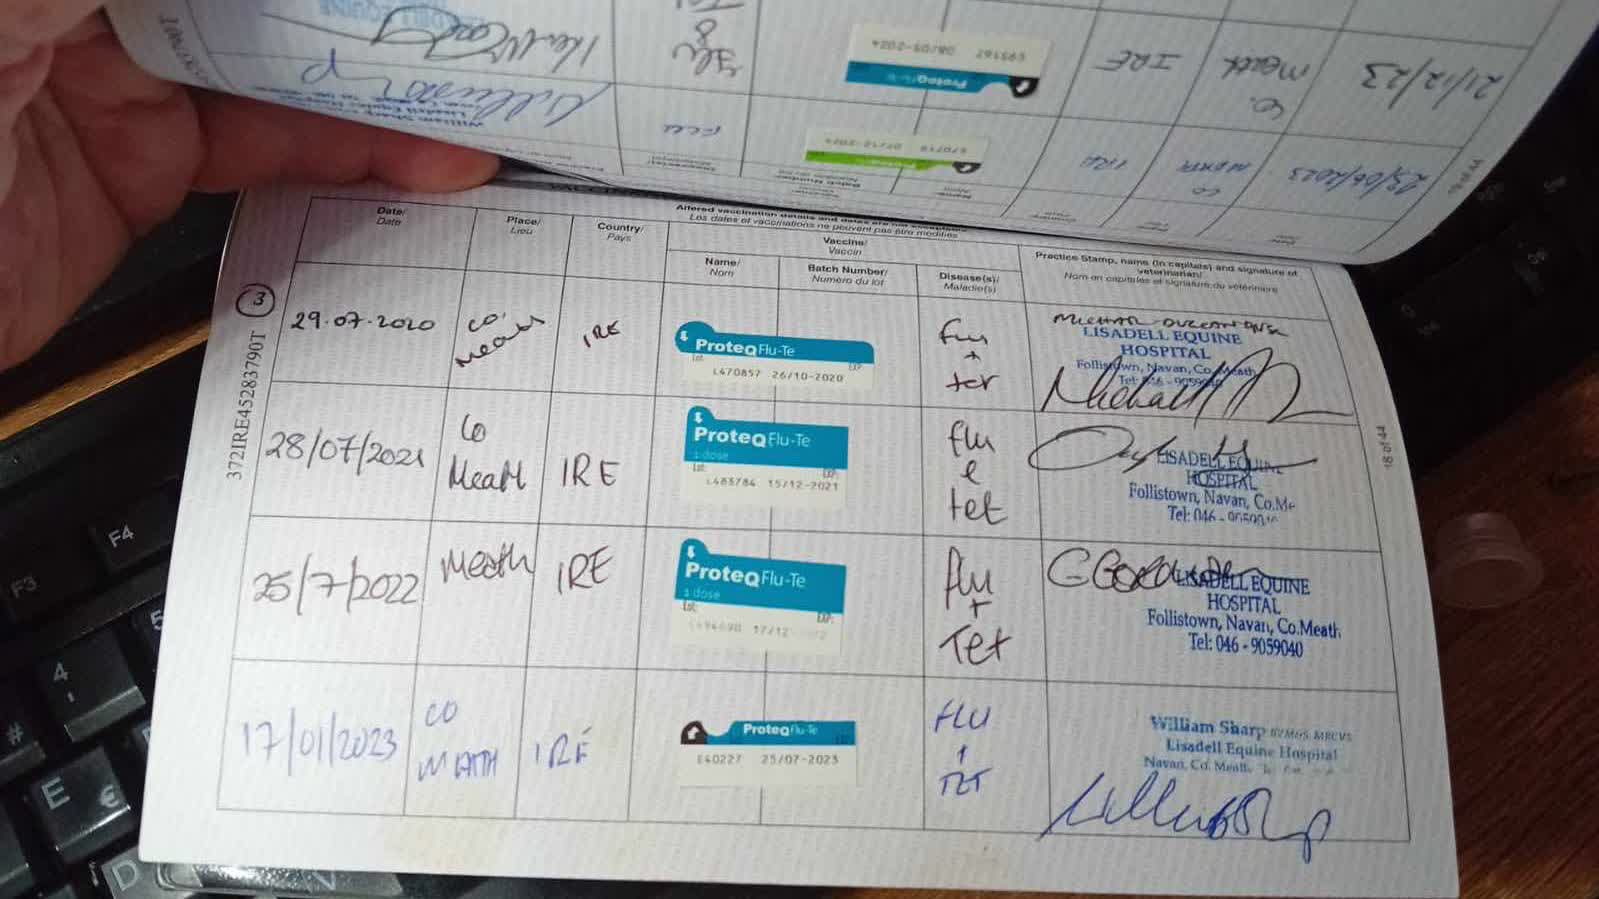 21/12/23
Co.
Meath
IRE
ProteqFlu-Te
E93162 08/05/2024
Flu
&
23/06/2023
CO
MEATH
IRE
ProteqFlu
E70719 07/12/2024
FLU
William Sharp
Lisadell Equine Hospital
19 of 44
Altered vaccination details and dates are not acceptable
Les dates et vaccinations ne peuvent pas être modifiés
Date/
Date
Place/
Lieu
Country/
Pays
Vaccine/
Vaccin
Name/
Nom
Batch Number/
Numéro du lot
Disease(s)/
Maladie(s)
Practice Stamp, name (in capitals) and signature of
veterinarian/
Nom en capitales et signature du vétérinaire
372IRE45283790T
3
29.07.2020
CO.
Meath
IRE
ProteqFlu-Te
Lot: EXP:
L470857 26/10-2020
Flu
+
tet
LISADELL EQUINE
HOSPITAL
Follistown, Navan, Co.Meath
Tel: 046 - 9059040
28/07/2021
Co
Meath
IRE
ProteqFlu-Te
1 dose
Lot: EXP:
L483784 15/12-2021
flu
e
tet
LISADELL EQUINE
HOSPITAL
Follistown, Navan, Co.Me
Tel: 046 - 9059040
25/7/2022
Meath
IRE
ProteqFlu-Te
1 dose
Lot: EXP:
L494690 17/12
flu
+
Tet
LISADELL EQUINE
HOSPITAL
Follistown, Navan, Co.Meath
Tel: 046 - 9059040
17/01/2023
CO
MEATH
IRE
ProteqFlu-Te
E40227 25/07-2023
FLU
+
TET
William Sharp BVM&S MRCVS
Lisadell Equine Hospital
Navan, Co. Meath
18 of 44
F4
F3
5
4
#
E
€
D
V
0
Ins